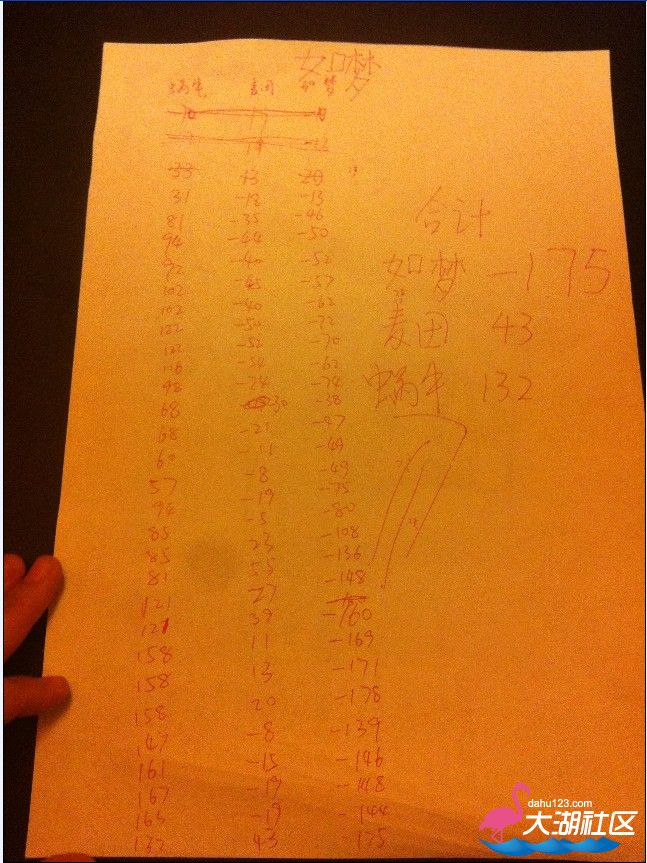 如梦
蜗牛 麦田 如梦
33 43 -20
31 -18 -13
81 -35 -46
94 -44 -50
92 -40 -52
102 -45 -57
102 -40 -62
122 -50 -72
122 -52 -70
116 -54 -62
98 -24 -74
68 -30 -38
68 -21 -47
60 -11 -49
57 -8 -49
94 -19 -75
85 -5 -80
85 23 -108
81 55 -136
121 27 -148
121 39 -160
158 11 -169
158 13 -171
158 20 -178
147 -8 -139
161 -15 -146
167 -19 -148
163 -19 -144
132 43 175
合计
如梦 -175
麦田 43
蜗牛 132
dahu123.com
大湖社区